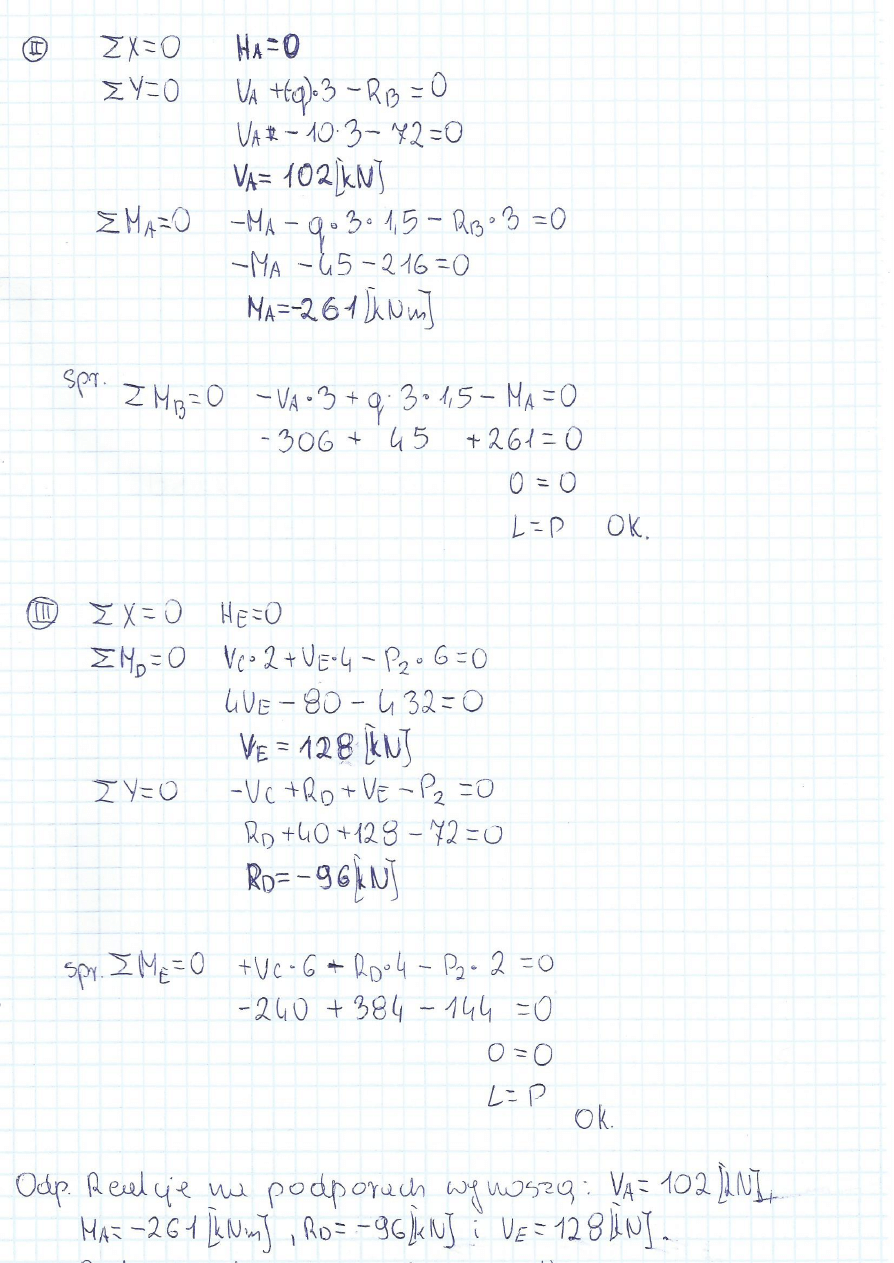 Ⅱ ΣX=0 HA=0
ΣY=0 VA+(-q)·3-RB=0
VA-10·3-72=0
VA=102[kN]
ΣMA=0 -MA-q·3·1,5-RB·3=0
-MA-45-216=0
MA=-261[kNm]
spr. ΣMB=0 -VA·3+q·3·1,5-MA=0
-306+45+261=0
0=0
L=P OK.
Ⅲ ΣX=0 HE=0
ΣMD=0 VC·2+VE·4-P2·6=0
4VE-80-432=0
VE=128[kN]
ΣY=0 -VC+RD+VE-P2=0
RD+40+128-72=0
RD=-96[kN]
spr. ΣME=0 +VC·6-RD·4-P2·2=0
-240+384-144=0
0=0
L=P
Ok.
Odp. Reakcje na podporach wynoszą: VA=102[kN],
MA=-261[kNm], RD=-96[kN] i VE=128[kN].